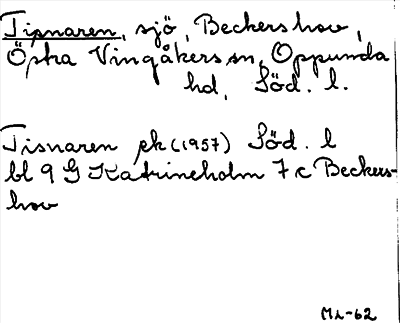 Tisnaren, sjö, Beckershov,
Östra Vingåkers sn, Oppunda
hd, Söd. l.
Tisnaren ek (1957) Söd. l
bl 9 G Katrineholm 7 c Beckers-
hov
ML-62